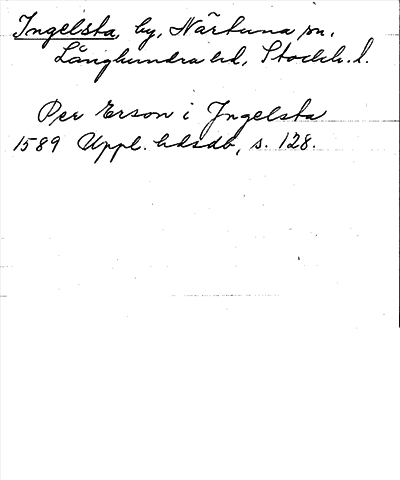 Ingelsta, by, Närtuna sn,
Långhundra hd, Stockh. l.
Per Erson i Ingelsta
1589 Uppl. hdsdb, s. 128.